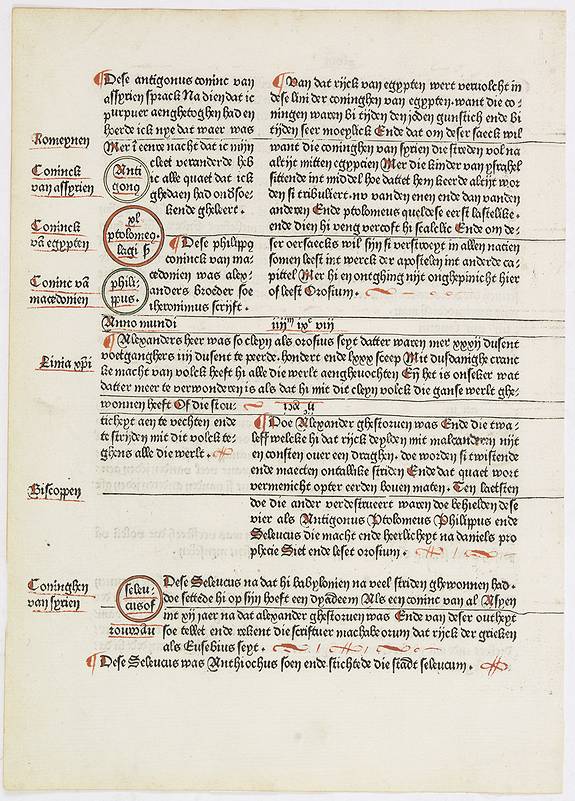 Dese antigonus coninc van
assyrien sprack Na dien dat ic
purpuer aenghetoghen had en
hoerde ick nye dat waer was
Mer i eenre nacht dat ic mijn
cleet veranderde heb
ic alle quaet dat ick
ghedaen had ondsoe
kende gheleert.
Romeynen
Coninck
van assyrien
Anti
gono
Coninck
vā egypten
xl
ptolomeo.
lagi
Dese philippo
coninck van ma
cedonien was alex
anders broeder soe
iheronimus scrijft.
Coninc vā
macedonien
phili
ppus.
Van dat rijck van egypten wert vervolcht in
dese lini der coninghen van egypten. want die co
ningen waren bi tijden den joden gunstich ende bi
tijden seer moeylick Ende dat om deser saeck wil
want die coninghen van syrien die streden vol na
altijt mitten egyptien Mer die kinder van ysrahel
sittende int middel hoe dattet hem keerde altijt wor
den si tribuliert. nv vanden enen ende dan vanden
anderen Ende ptolomeus quelde se eerst lastelike.
ende dien hi veng vercoft hi scalclic Ende om de
ser oersaecks wil sijn si verstroeyt in allen natien
somen leest int werck der apostelen int anderde ca
pittel Mer hi en ontghing nijt onghepinicht hier
of leest Orosium.
Anno mundi
iiijm ixc viij
Linia xpi
Alexanders heer was so cleyn als orosius seyt datter waren mer xxxij dusent
voetganghers iiij dusent te peerde. hondert ende lxxx sceep Mit dusdanighe cranc
ke macht van volck heeft hi alle die werlt aenghevochten En het is onseker wat
datter meer te verwonderen is als dat hi mit dit cleyn volck die ganse werlt ghe
wonnen heeft Of die stou
ticheyt aen te vechten ende
te strijden mit dit volck te
ghens alle die werlt.
Doe Alexander ghestorven was Ende die twa
leff welcke hi dat rijck deylden mit malcanderen nijt
en consten over een draghen. doe worden si twistende
ende maecten ontallike striden Ende dat quaet wort
vermenicht opter eerden boven maten. Ten laetsten
doe die ander verdestrueert waren doe behielden dese
vier als Antigonus Ptolomeus Philipus ende
Seleucus die macht ende heerlicheyt na daniels pro
phetie Siet ende leset orosium.
Biscoppen
Coninghen
van syrien
seleu
cus of
Dese Seleucus na dat hi babylonien na veel striden ghewonnen had.
doe settede hi op sijn hoeft een dyadeem Als een coninc van al Asyen
int xij jaer na dat alexander ghestorven was Ende van deser outheyt
soe tellet ende rekent die scriftuer machabeorum dat rijck der grieken
als Eusebius seyt.
Dese Seleucus was Anthiochus soen ende stichtede die stadt seleucum.